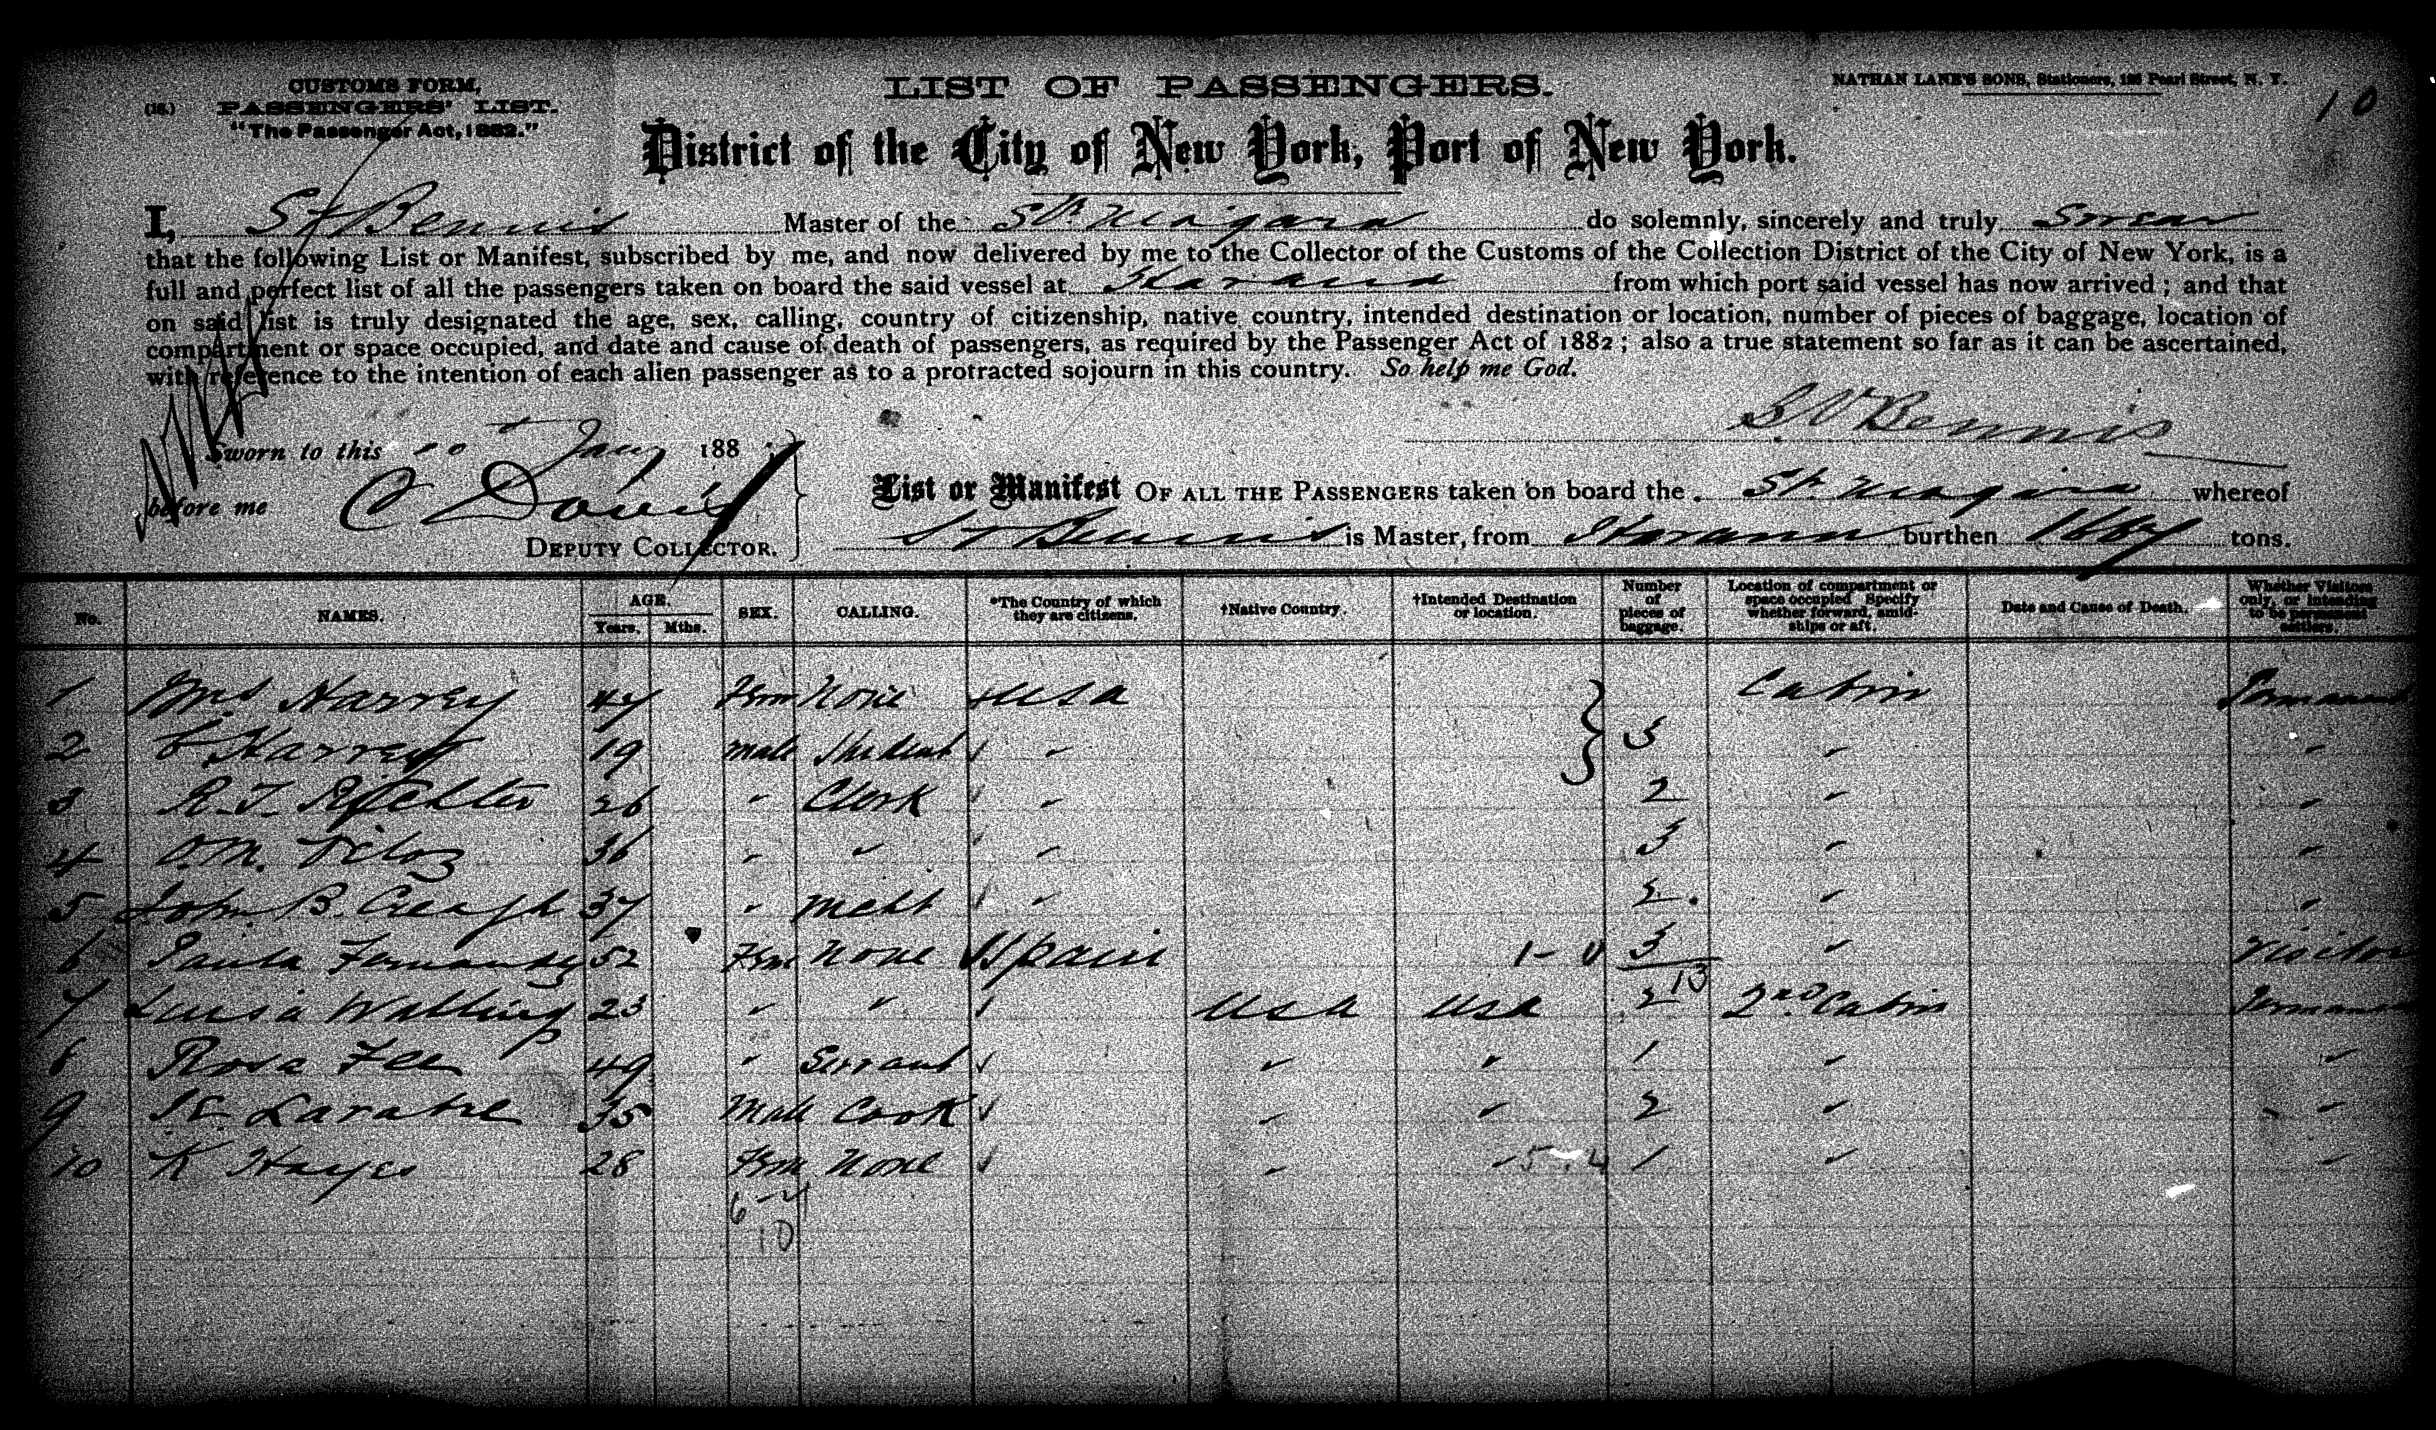 CUSTOMS FORM,
(16.) PASSENGERS' LIST.
"The Passenger Act, 1882."
LIST OF PASSENGERS.
NATHAN LANE'S SONS, Stationers, 125 Pearl Street, N. Y.
10
District of the City of New York, Port of New York.
I, Bennis Master of the Str Niagara do solemnly, sincerely and truly Swear
that the following List or Manifest, subscribed by me, and now delivered by me to the Collector of the Customs of the Collection District of the City of New York, is a
full and perfect list of all the passengers taken on board the said vessel at Havana from which port said vessel has now arrived; and that
on said list is truly designated the age, sex, calling, country of citizenship, native country, intended destination or location, number of pieces of baggage, location of
compartment or space occupied, and date and cause of death of passengers, as required by the Passenger Act of 1882; also a true statement so far as it can be ascertained,
with reference to the intention of each alien passenger as to a protracted sojourn in this country. So help me God.
Bennis
Sworn to this Jany 188
before me C Davis
DEPUTY COLLECTOR.
List or Manifest OF ALL THE PASSENGERS taken on board the Str. Niagara whereof
Bennis is Master, from Havana burthen 1667 tons.
No. NAMES. AGE. Years. Mths. SEX. CALLING. *The Country of which they are citizens. †Native Country. †Intended Destination or location. Number of pieces of baggage. Location of compartment or space occupied Specify whether forward, amidships or aft. Date and Cause of Death. Whether Visitors only, or intending to be permanent settlers.
1 Mrs Harvey 47 Fem None USA Cabin Permanent
2 Harvey 19 Male Student " 3 " "
3 R. T. 26 " Clerk " 2 " "
4 O M. 36 " " " 3 " "
5 John B. Creagh 37 " Mcht " 2 " "
6 Paula Fernandez 52 Fem None Spain 1-0 3 " Visitor
13
7 Luisa Walling 23 " " USA USA 2 2nd Cabin Permanent
8 Rosa Fee 49 " Servant " " 1 " "
9 Larable 35 Male Cook " " 2 " "
10 K Hayes 28 Fem None " " 5-4 1 " "
6-4
10